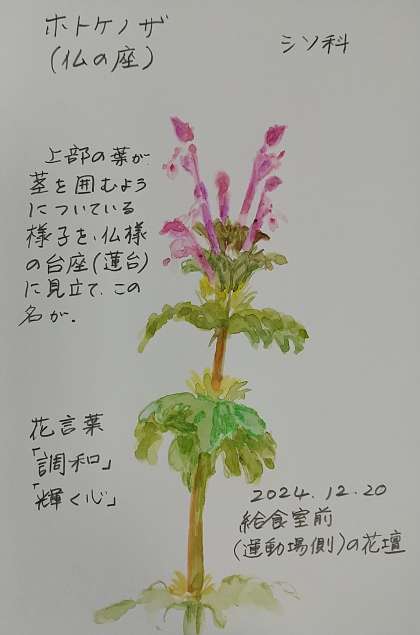 ホトケノザ
(仏の座)
シソ科
上部の葉が
茎を囲むよう
についている
様子を、仏様
の台座(蓮台)
に見立て、この
名が。
花言葉
「調和」
「輝く心」
2024.12.20
給食室前
(運動場側)の花壇